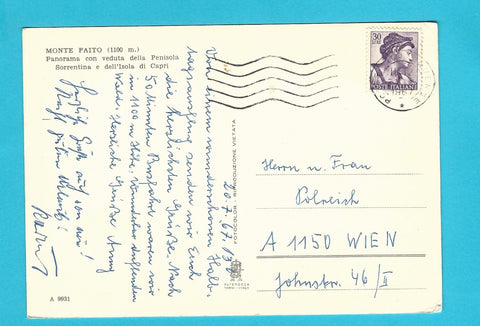 MONTE FAITO (1100 m.)
Panorama con veduta della Penisola
Sorrentina e dell'Isola di Capri
30
POSTE ITALIANE
20.7.67.
Von einem wunderschönen Halb-
tagsausflug senden wir Euch
die herzlichsten Grüße. Nach
50 Minuten Busfahrt waren wir
in 1100 m Höhe. Wunderbar duftender
Wald. Herzliche Grüße
Herzliche Grüße auch von mir!
RIPRODUZIONE VIETATA
Herrn u. Frau
Polreich
A 1150 WIEN
Johnstr. 46/II
A 9931